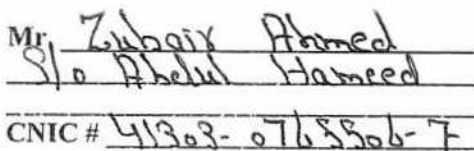 Mr. Zubair Ahmed
S/o Abdul Hameed
CNIC # 41303-0765506-7